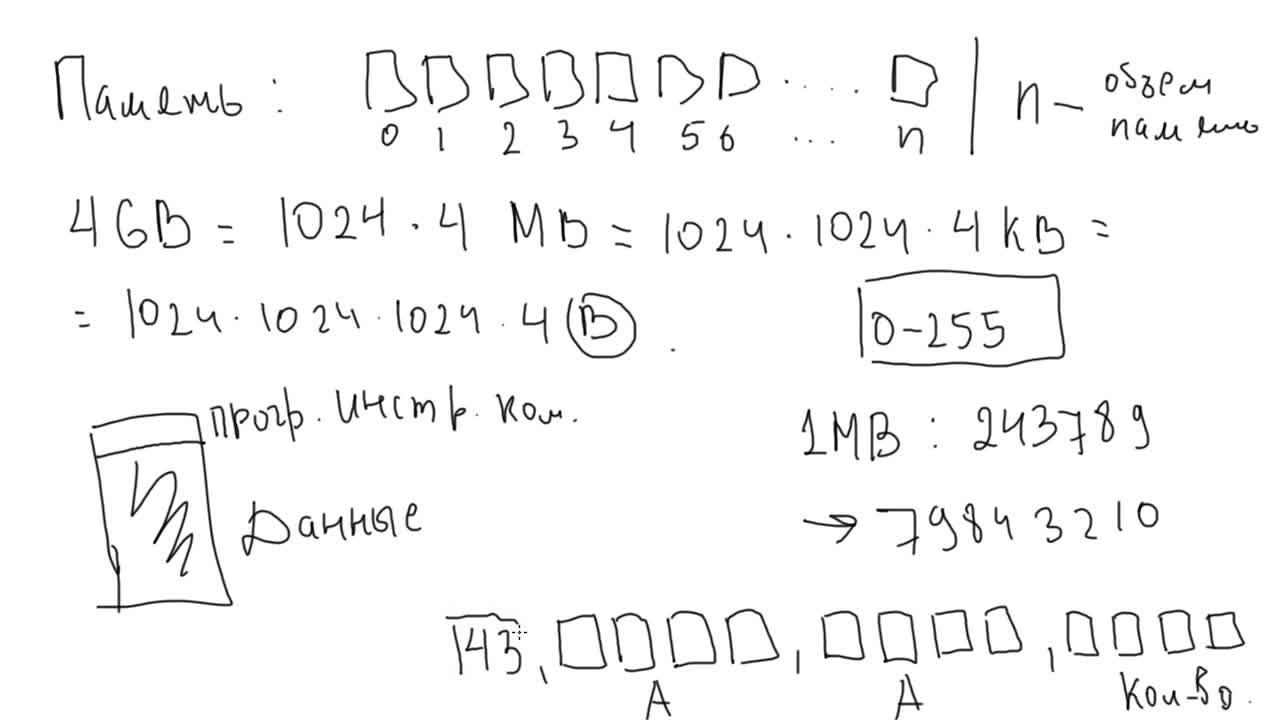 Память :
0 1 2 3 4 5 6 ... n
n - объем
памяти
4GB = 1024 · 4 MB = 1024 · 1024 · 4 KB =
= 1024 · 1024 · 1024 · 4 B .
0-255
прогр. инстр. ком.
1MB : 243789
Данные
→ 79843210
143, , ,
А А Кол-во.